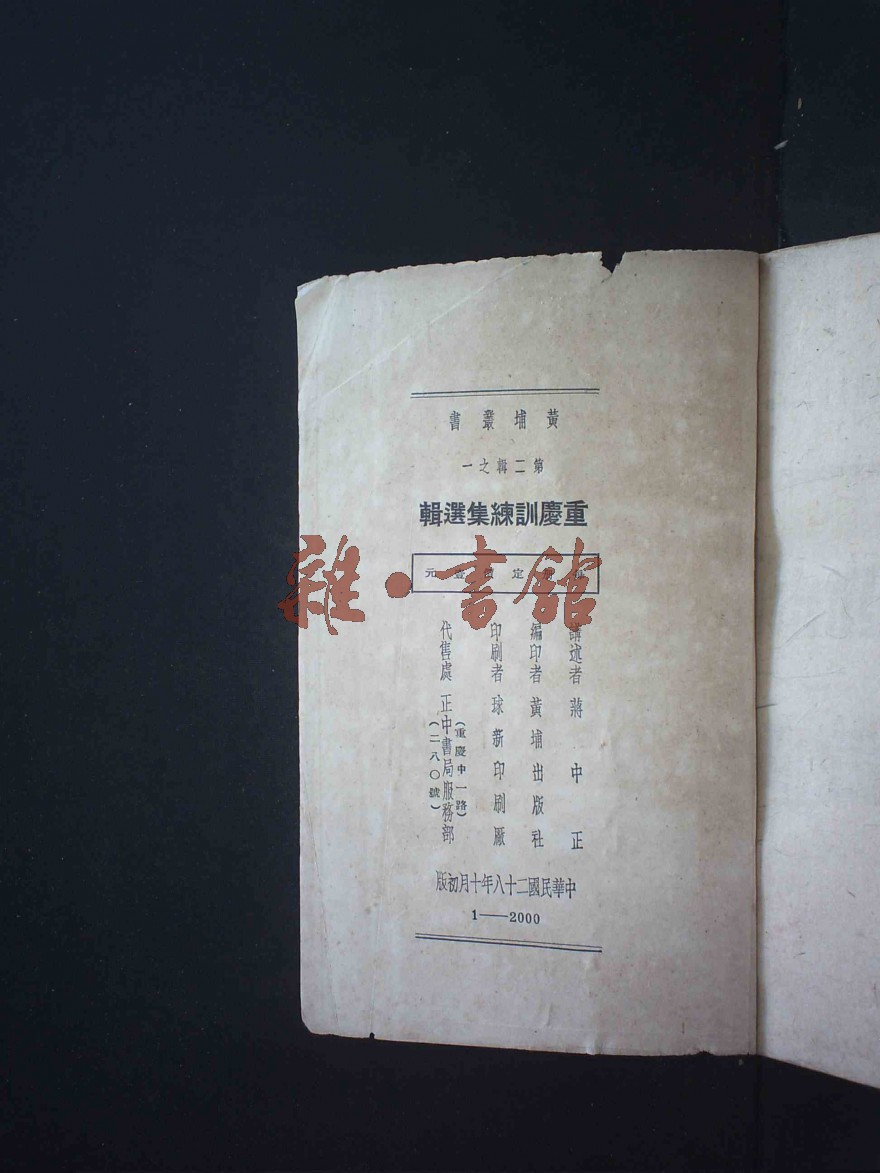 黃埔叢書
第二輯之一
重慶訓練集選輯
定價壹元
講述者 蔣中正
編印者 黃埔出版社
印刷者 球新印刷廠
代售處 正中書局服務部
(重慶中一路)
(二八〇號)
中華民國二十八年十月初版
1——2000
雜·書館